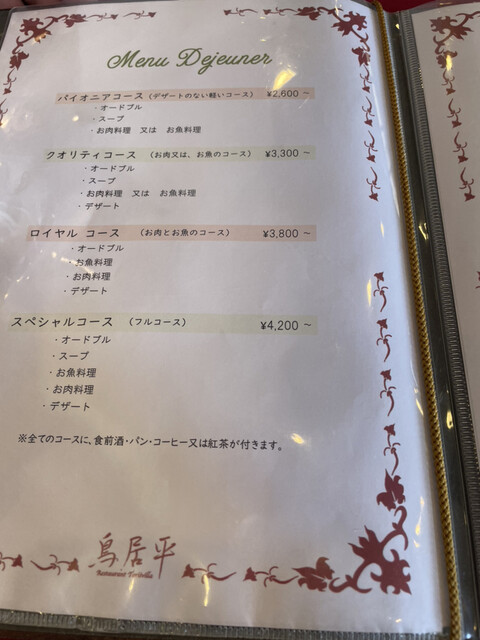 Menu Dejeuner
パイオニアコース（デザートのない軽いコース） ¥2,600 ～
・オードブル
・スープ
・お肉料理　又は　お魚料理
クオリティコース （お肉又は、お魚のコース） ¥3,300 ～
・オードブル
・スープ
・お肉料理　又は　お魚料理
・デザート
ロイヤル コース （お肉とお魚のコース） ¥3,800 ～
・オードブル
・お魚料理
・お肉料理
・デザート
スペシャルコース （フルコース） ¥4,200 ～
・オードブル
・スープ
・お魚料理
・お肉料理
・デザート
※全てのコースに、食前酒・パン・コーヒー又は紅茶が付きます。
鳥居平
Restaurant Torihille